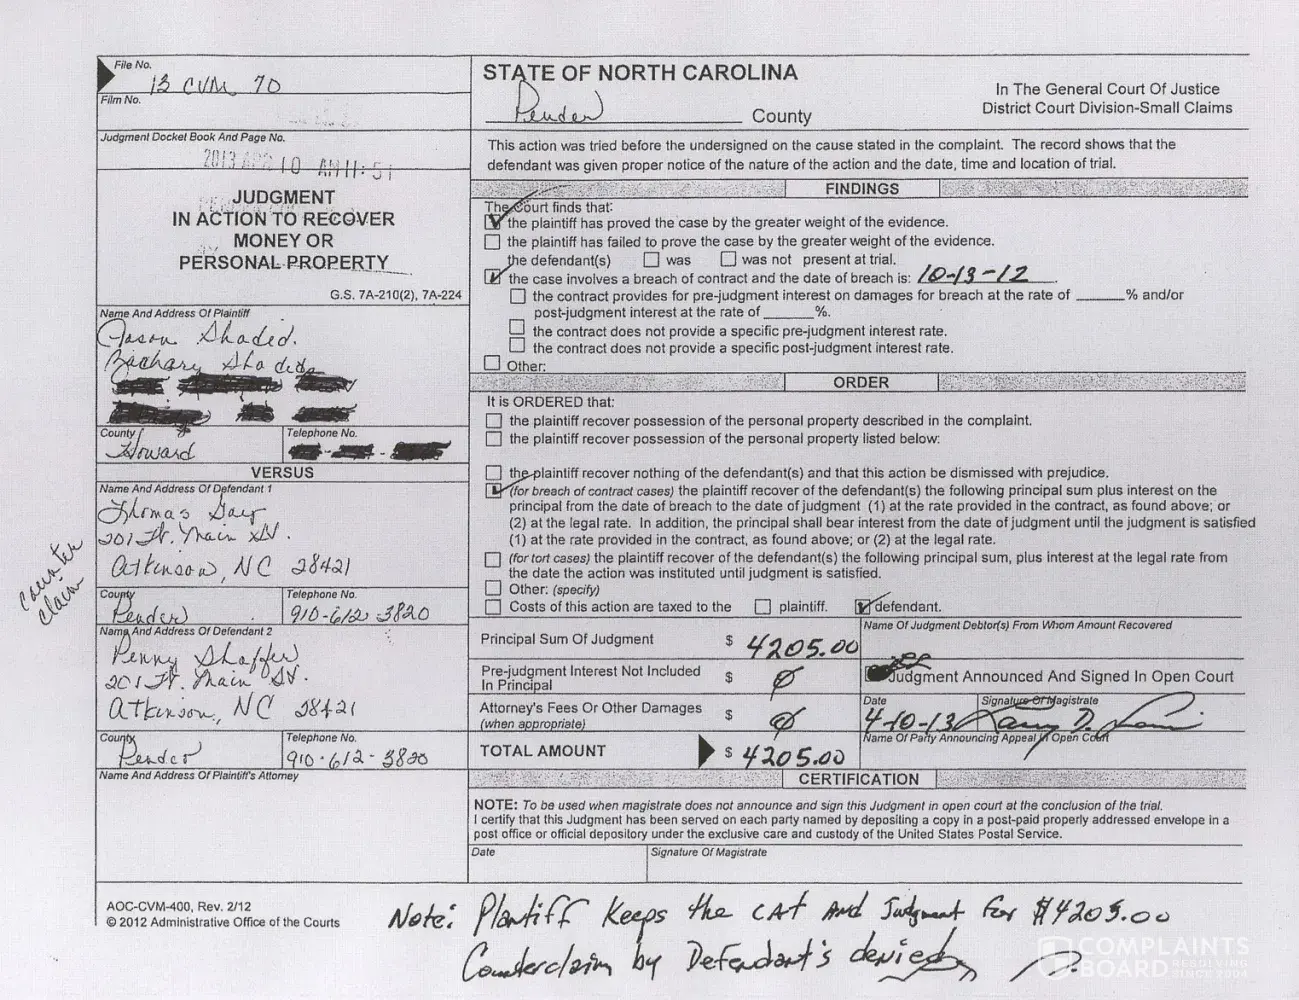 File No.
13 CVM 70
Film No.
Judgment Docket Book And Page No.
2013 APR 10 AM 11:51
JUDGMENT
IN ACTION TO RECOVER
MONEY OR
PERSONAL PROPERTY
G.S. 7A-210(2), 7A-224
Name And Address Of Plaintiff
Jason Shaded.
Zachary Shaded
County
Howard
Telephone No.
VERSUS
Name And Address Of Defendant 1
Thomas
201 Main
Atkinson, NC 28421
County
Pender
Telephone No.
910-612-3820
Name And Address Of Defendant 2
Penny Shaffer
201 Main
Atkinson, NC 28421
County
Pender
Telephone No.
910-612-3820
Name And Address Of Plaintiff's Attorney
counter
claim
STATE OF NORTH CAROLINA
Pender County
In The General Court Of Justice
District Court Division-Small Claims
This action was tried before the undersigned on the cause stated in the complaint. The record shows that the
defendant was given proper notice of the nature of the action and the date, time and location of trial.
FINDINGS
The Court finds that:
the plaintiff has proved the case by the greater weight of the evidence.
the plaintiff has failed to prove the case by the greater weight of the evidence.
the defendant(s) was was not present at trial.
the case involves a breach of contract and the date of breach is: 10-13-12.
the contract provides for pre-judgment interest on damages for breach at the rate of ______% and/or
post-judgment interest at the rate of ______%.
the contract does not provide a specific pre-judgment interest rate.
the contract does not provide a specific post-judgment interest rate.
Other:
ORDER
It is ORDERED that:
the plaintiff recover possession of the personal property described in the complaint.
the plaintiff recover possession of the personal property listed below:
the plaintiff recover nothing of the defendant(s) and that this action be dismissed with prejudice.
(for breach of contract cases) the plaintiff recover of the defendant(s) the following principal sum plus interest on the
principal from the date of breach to the date of judgment (1) at the rate provided in the contract, as found above; or
(2) at the legal rate. In addition, the principal shall bear interest from the date of judgment until the judgment is satisfied
(1) at the rate provided in the contract, as found above; or (2) at the legal rate.
(for tort cases) the plaintiff recover of the defendant(s) the following principal sum, plus interest at the legal rate from
the date the action was instituted until judgment is satisfied.
Other: (specify)
Costs of this action are taxed to the plaintiff. defendant.
Principal Sum Of Judgment $ 4205.00
Pre-judgment Interest Not Included
In Principal $ Ø
Attorney's Fees Or Other Damages
(when appropriate) $ Ø
TOTAL AMOUNT $ 4205.00
Name Of Judgment Debtor(s) From Whom Amount Recovered
Judgment Announced And Signed In Open Court
Date
4-10-13
Signature Of Magistrate
Name Of Party Announcing Appeal In Open Court
CERTIFICATION
NOTE: To be used when magistrate does not announce and sign this Judgment in open court at the conclusion of the trial.
I certify that this Judgment has been served on each party named by depositing a copy in a post-paid properly addressed envelope in a
post office or official depository under the exclusive care and custody of the United States Postal Service.
Date
Signature Of Magistrate
AOC-CVM-400, Rev. 2/12
© 2012 Administrative Office of the Courts
Note: Plantiff Keeps the CAt And Judgment for $4205.00
Counterclaim by Defendant's denied
COMPLAINTS
BOARD RESOLVING
SINCE 2004